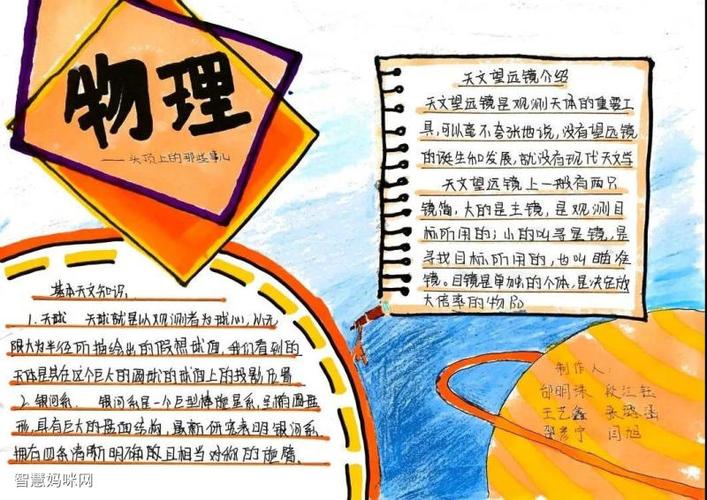 物理
——头顶上的那些事儿
基本天文知识:
1.天球 天球就是以观测者为球心,以无
限大为半径所描绘出的假想球面,我们看到的
天体是其在这个巨大的圆球的球面上的投影位置
2.银河系. 银河系是一个巨型棒旋星系,呈椭圆盘
形,具有巨大的盘面结构,最新研究表明银河系
拥有四条清晰明确且相当对称的旋臂.
天文望远镜介绍
天文望远镜是观测天体的重要工
具,可以毫不夸张地说,没有望远镜
的诞生和发展,就没有现代天文学
天文望远镜上一般有两只
镜筒,大的是主镜,是观测目
标所用的;小的叫寻星镜,是
寻找目标所用的,也叫瞄准
镜.目镜是单独的个体,是决定放
大倍率的物品
制作人:
邰明珠
王艺鑫
邵彦宁 闫旭
智慧妈咪网